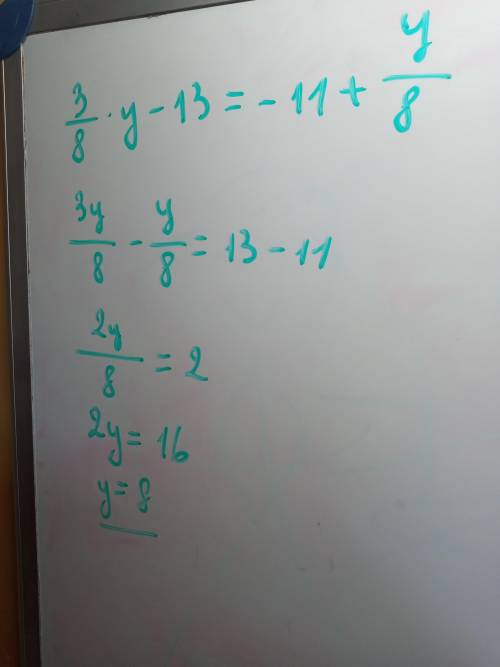 3/8 · y - 13 = - 11 + y/8
3y/8 - y/8 = 13 - 11
2y/8 = 2
2y = 16
y = 8